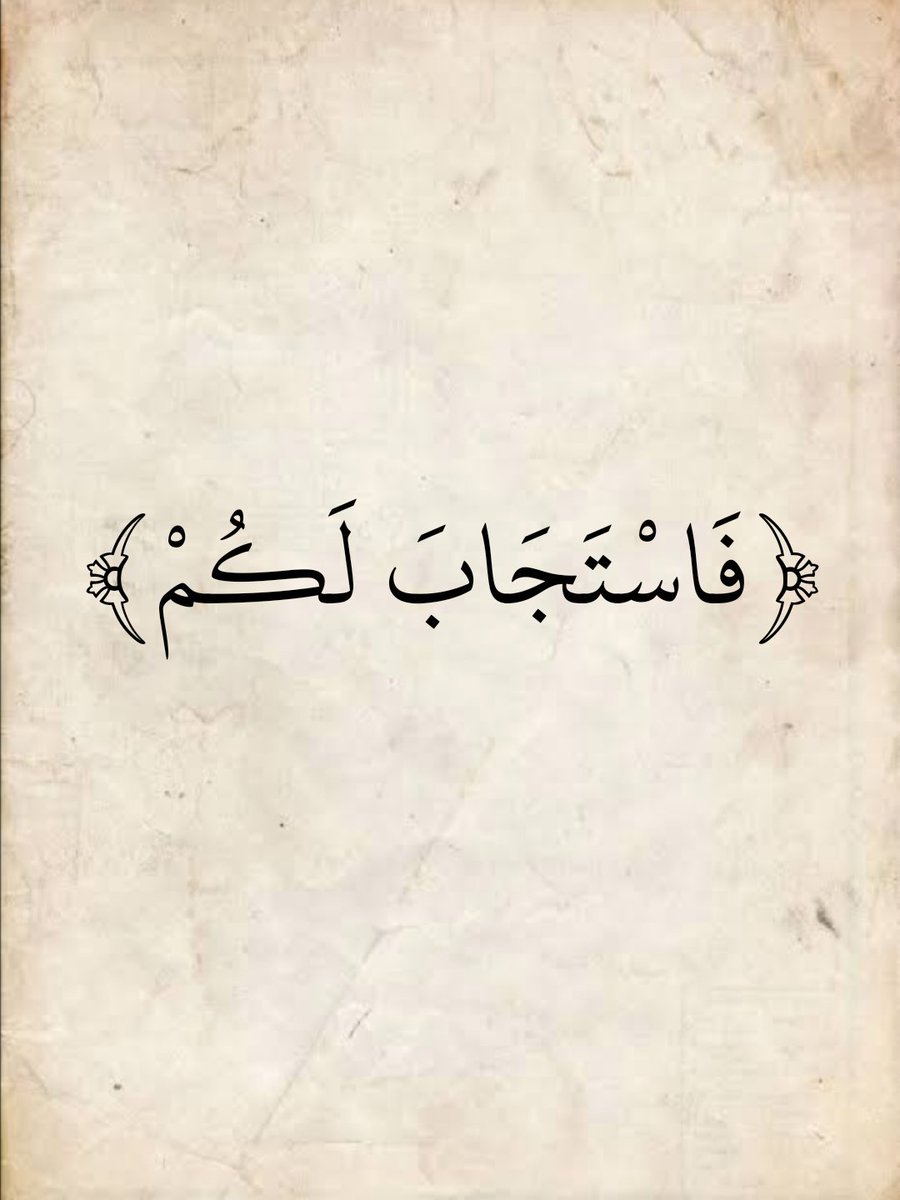 ﴿ فَاسْتَجَابَ لَكُمْ ﴾